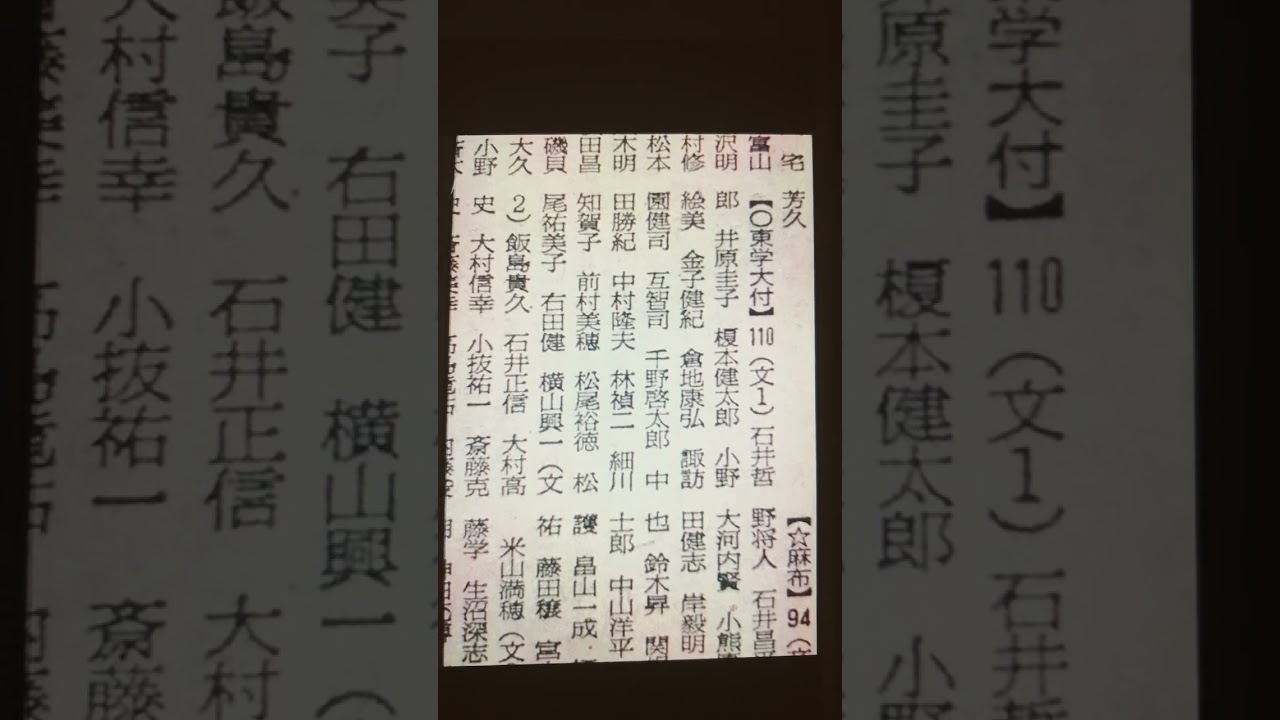 宅
富山
沢明
村修
松本
木明
田昌
磯貝
大久
小野
芳久
【○東学大付】110(文1)石井哲
郎 井原圭子 榎本健太郎 小野
絵美 金子健紀 倉地康弘 諏訪
園健司 互智司 千野啓太郎 中
田勝紀 中村隆夫 林禎二 細川
知賀子 前村美穂 松尾裕徳 松
尾祐美子 右田健 横山興一(文
2)飯島貴久 石井正信 大村高
史 大村信幸 小抜祐一 斎藤克
【☆麻布】94(文
野将人 石井昌
大河内賢 小熊
田健志 岸毅明
也 鈴木昇 関
士郎 中山洋平
護 畠山一成
祐 藤田穣 宮
米山満穂(文
藤学 生沼深志